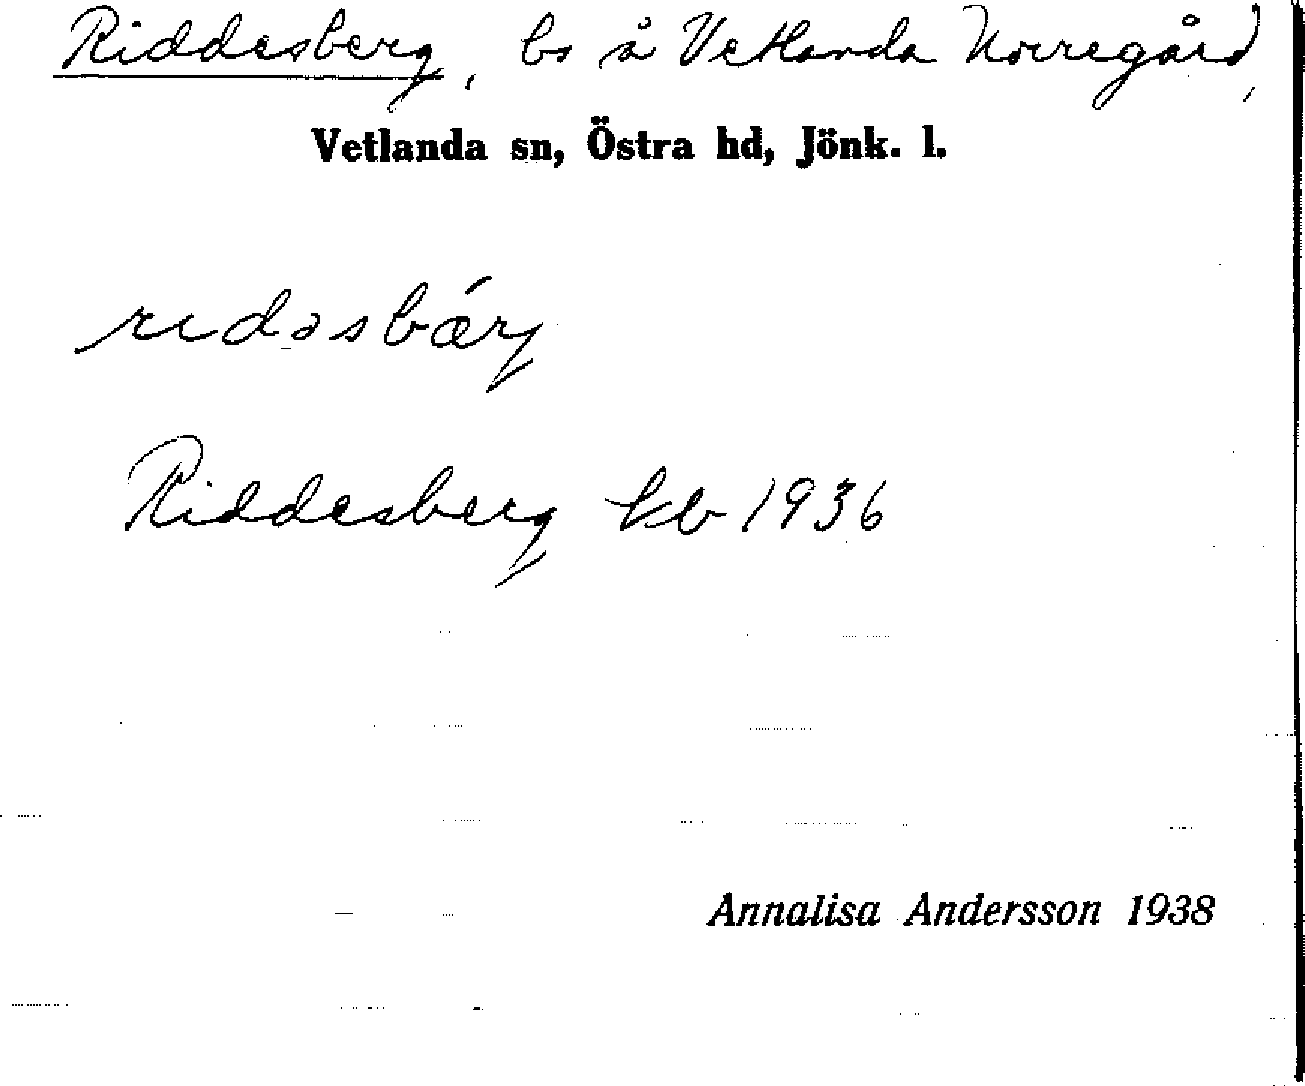 Riddesberg, bs å Vetlanda Norregård,
Vetlanda sn, Östra hd, Jönk. l.
ridəsbǽrj
Riddesberg kb 1936
Annalisa Andersson 1938